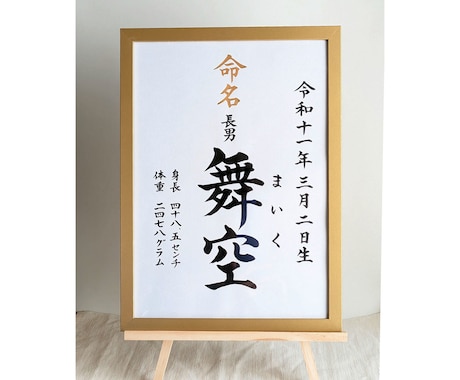 令和十一年三月二日生
命名
長男
舞空
まいく
身長 四十八.五センチ
体重 二四七八グラム